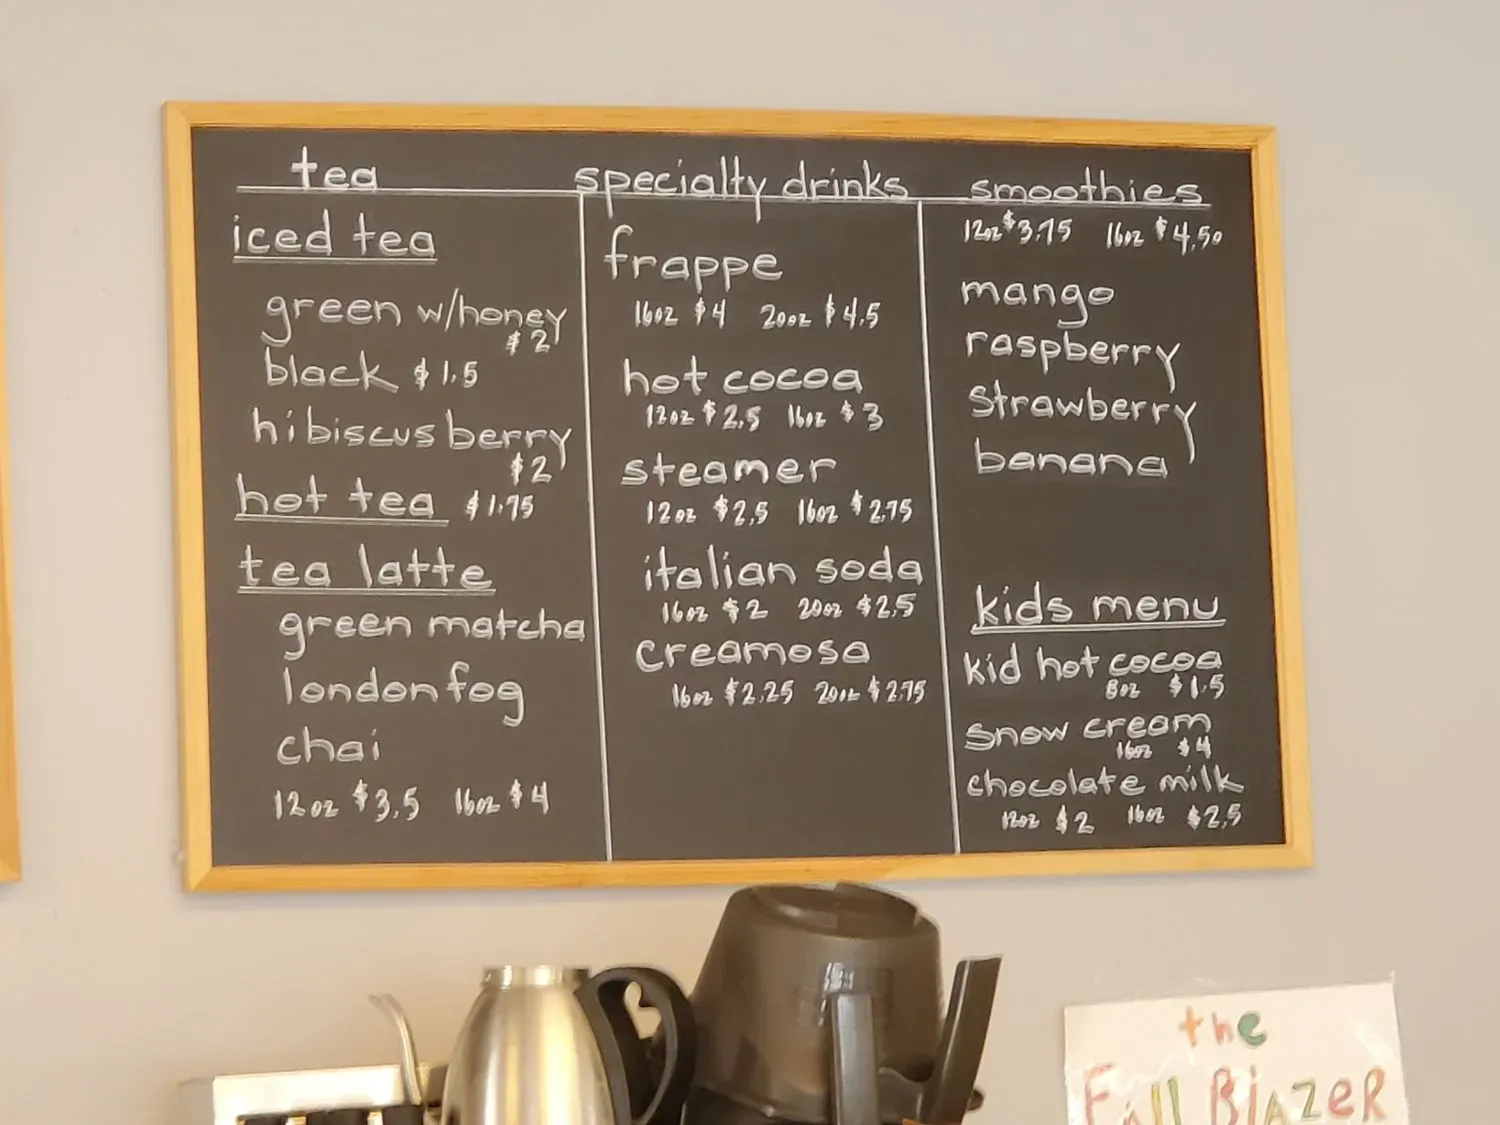 tea
iced tea
green w/honey
$2
black $1.5
hibiscus berry
$2
hot tea $1.75
tea latte
green matcha
london fog
chai
12oz $3.5 16oz $4
specialty drinks
frappe
16oz $4 20oz $4.5
hot cocoa
12oz $2.5 16oz $3
steamer
12oz $2.5 16oz $2.75
italian soda
16oz $2 20oz $2.5
creamosa
16oz $2.25 20oz $2.75
smoothies
12oz $3.75 16oz $4.50
mango
raspberry
strawberry
banana
kids menu
kid hot cocoa
8oz $1.5
snow cream
16oz $4
chocolate milk
12oz $2 16oz $2.5
the
Fall BlAZER